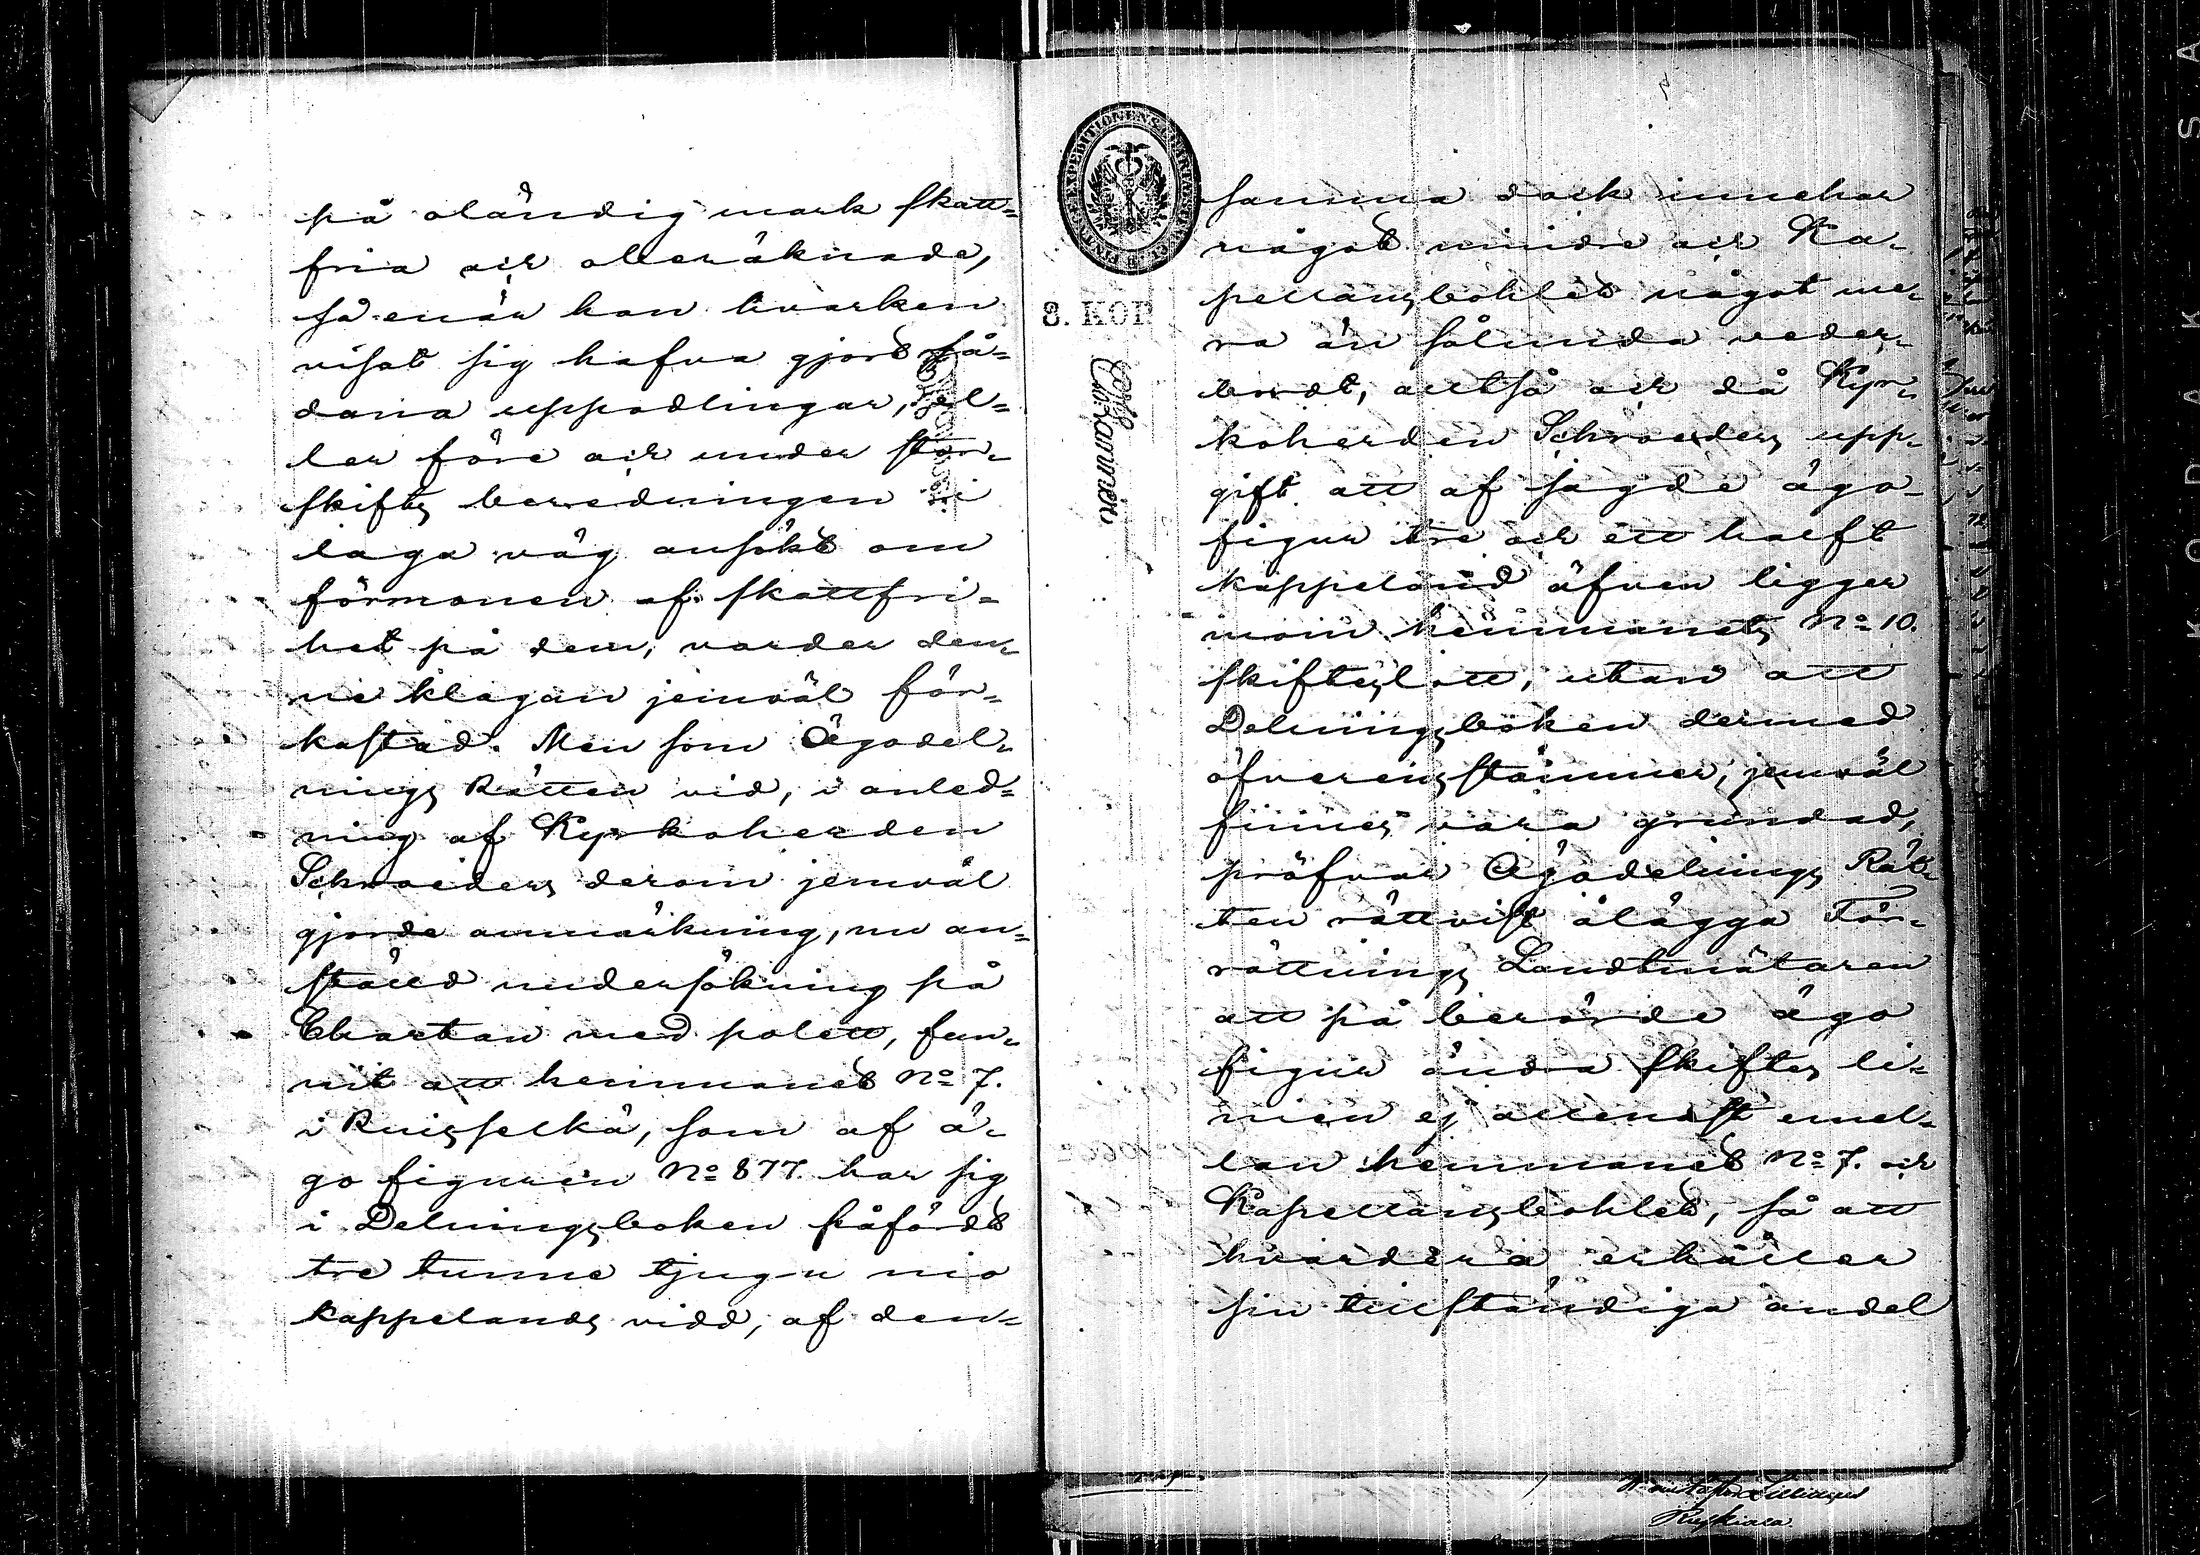 på oländig mark skatt=
fria och oberäknade,
så enär han hvarken
visat sig hafva gjort så=
dana uppodlingar, el=
ler före och under stor=
skifts beredningen i
laga väg ansökt om
förmonen af skattfri=
het på dem, varder den=
na klagan jemväl för=
kastad. Men som Ägodel=
nings Rätten vid, i anled=
ning af Kyrkoherden
Schroeders derom jemväl
gjorde anmärkning, nu an=
ställd undersökning på
Chartan med palett, fun=
nit att hemmanet No 7.
i Ruisselkä, som af ä=
go figuren No 877. har sig
i Delningsboken påfördt
tre tunne tjugu nio
kappelands vidd, af den=
samma dock innehar
något mindre och Ka=
pellansbohlet något me=
ra än sålunda veder=
bordt, alltså och då Kyr=
koherden Schroeders upp=
gift att af sagde ägo=
figur tre och ett halft
kappeland äfven ligger
inom hemmanets No 10.
skifteslott, utan att
Delningsboken dermed
öfverensstämmer, jemväl
finnes vara grundad,
pröfvar Ägodelnings Rät=
ten rättvist ålägga För=
rättnings Landtmätaren
att på berörde ägo
figur ändra skiftes li=
nien ej allenast emel=
lan hemmanet No 7. och
Kapellansbohlet, så att
hvardera erhåller
sin tillständiga andel
8. KOP